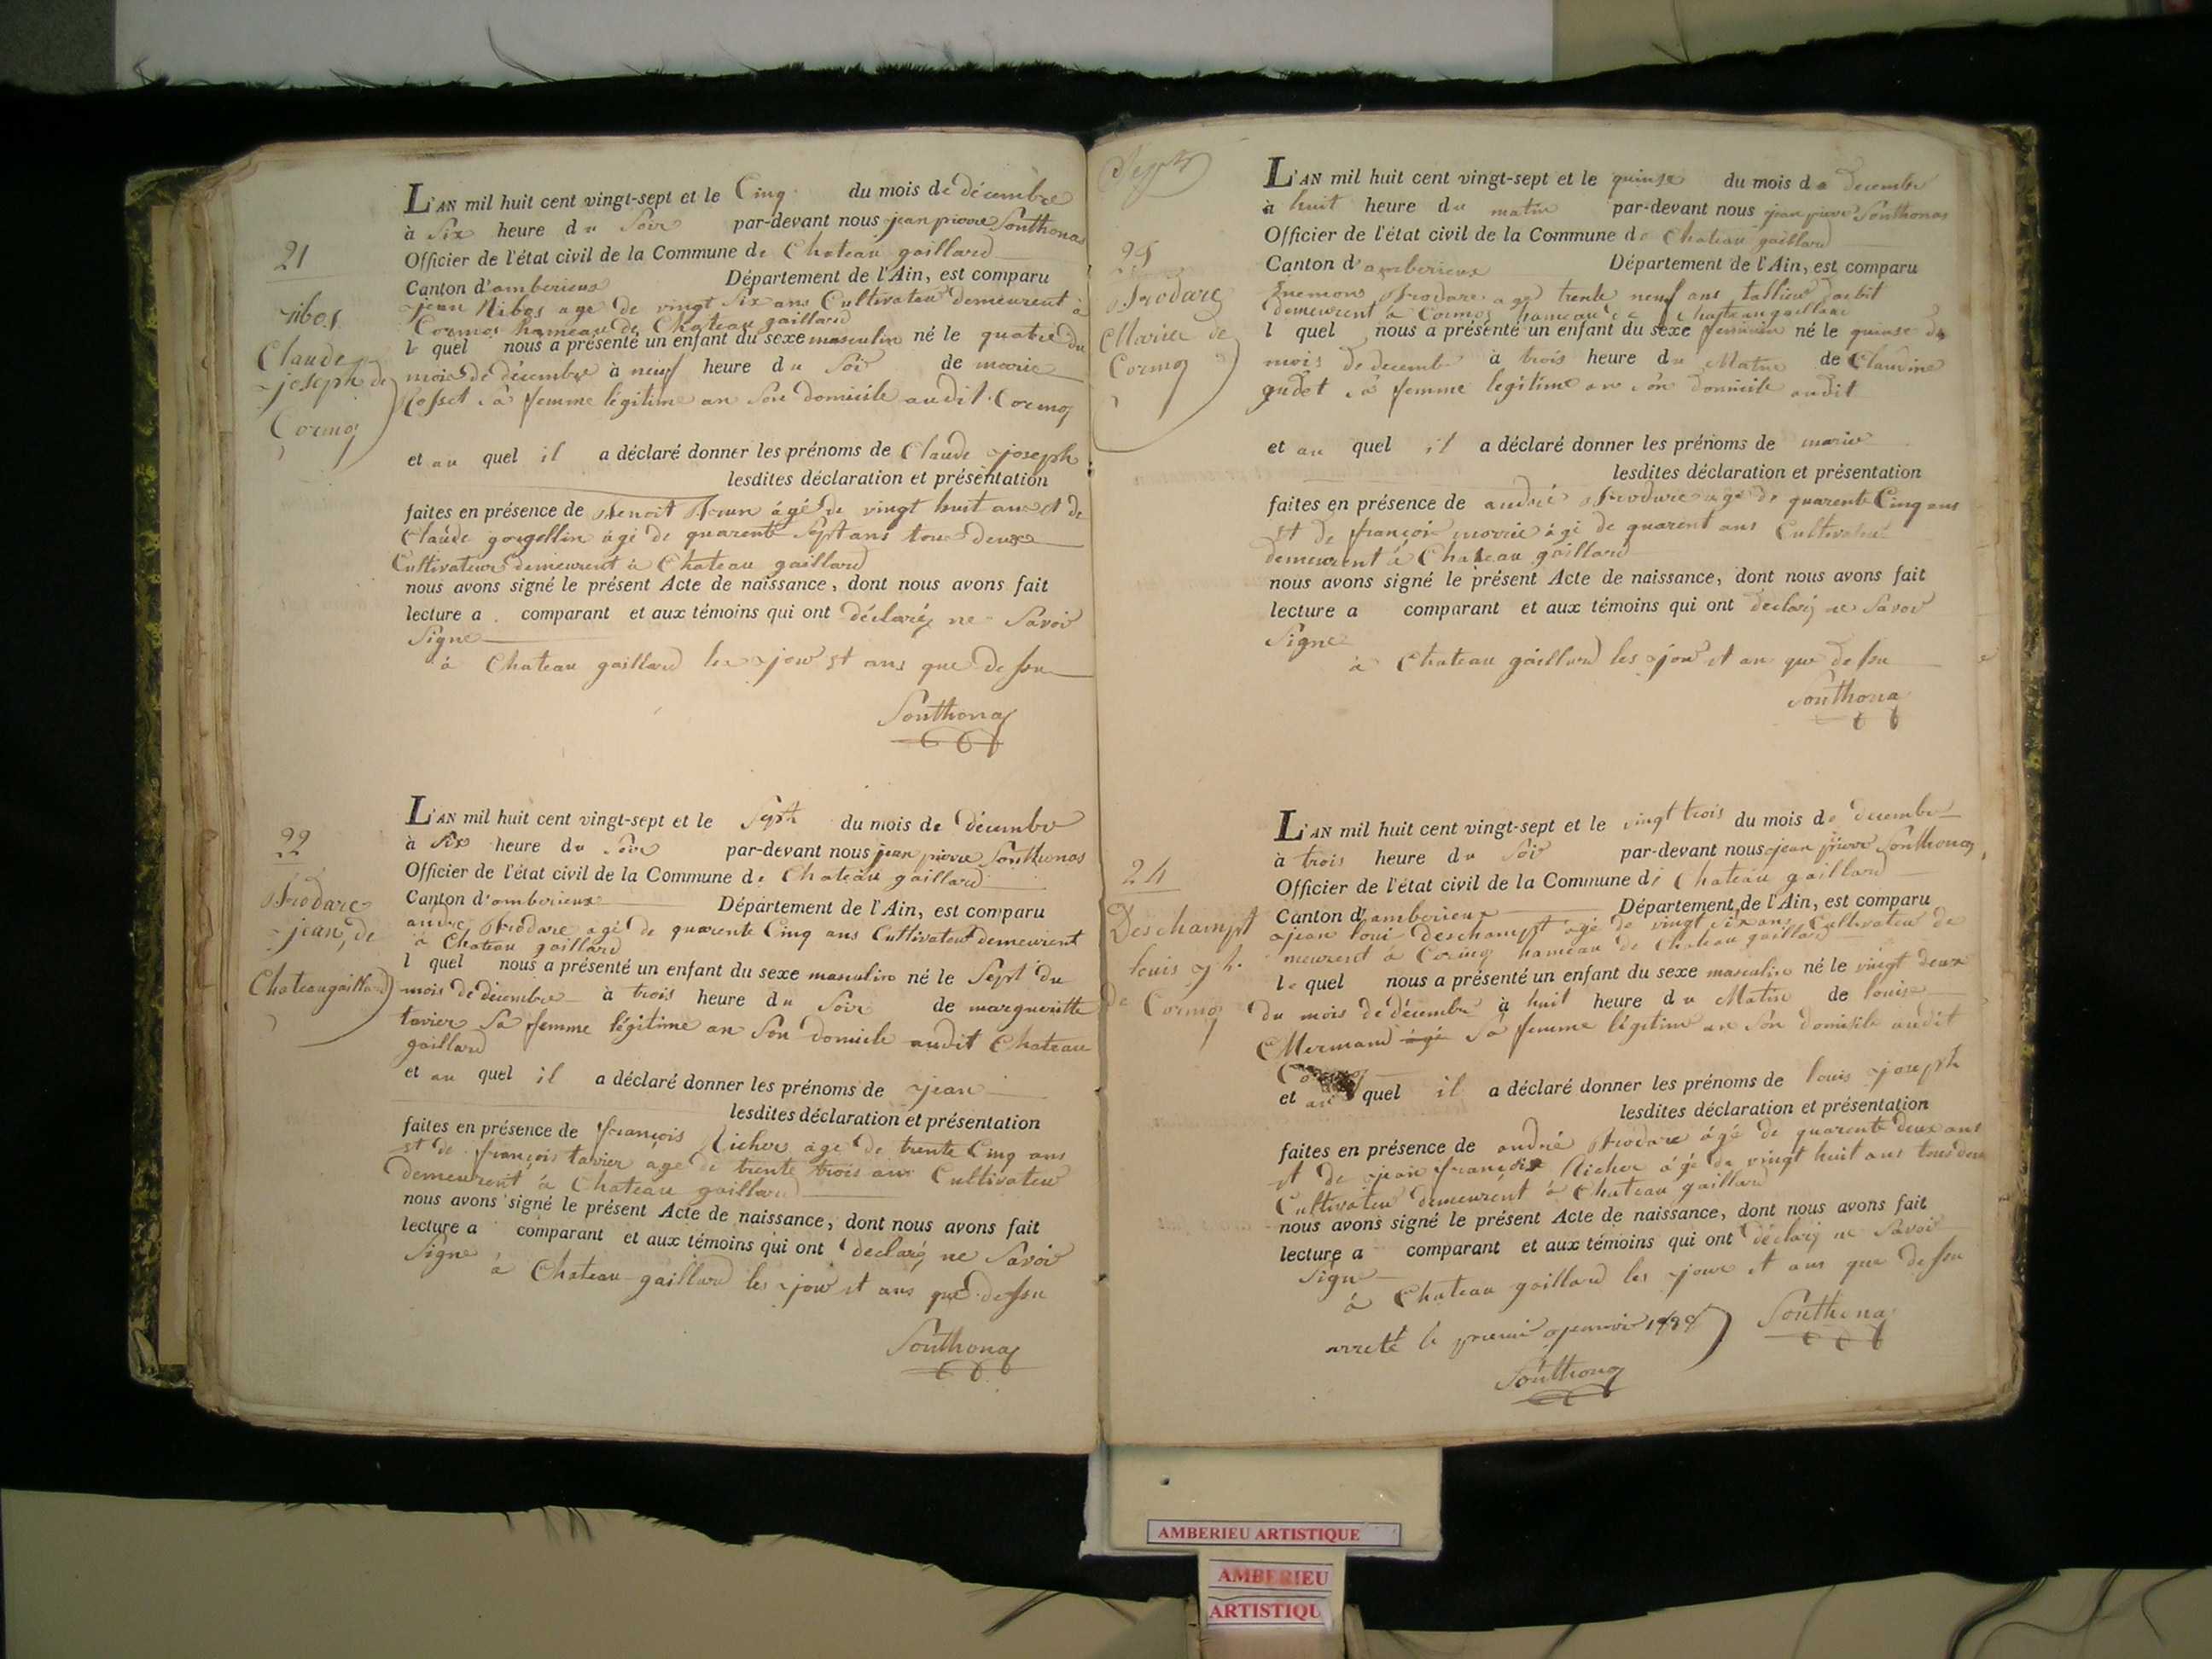 21
ribos
Claude
joseph de
Cormoz
L'AN mil huit cent vingt-sept et le Cinq du mois de décembre
à Six heure du Soir par-devant nous jean pierre Southonas
Officier de l'état civil de la Commune de Chateau gaillard
Canton d'amberieux Département de l'Ain, est comparu
jean Ribos age de vingt Six ans Cultivateur demeurent à
Cormoz hameau de Chateau gaillard
le quel nous a présenté un enfant du sexe masculin né le quatre du
mois de décembre à neuf heure du Soir de marie
Cosset Sa femme légitime an Son domicile audit Cormoz
et au quel il a déclaré donner les prénoms de Claude joseph
lesdites déclaration et présentation
faites en présence de Benoit Brun âgé de vingt huit ans et de
Claude gorgollin agé de quarente Sept ans tous deux
Cultivateurs demeurent à Chateau gaillard
nous avons signé le présent Acte de naissance, dont nous avons fait
lecture a comparant et aux témoins qui ont déclaréz ne Savoir
Signe
à Chateau gaillard les jour et ans que dessu
Southonas
22
Brodare
jean, de
Chateaugaillard
L'AN mil huit cent vingt-sept et le Sept du mois de décembre
à Six heure du Soir par-devant nous jean pierre Southonas
Officier de l'état civil de la Commune de Chateau gaillard
Canton d'amberieux Département de l'Ain, est comparu
andre Brodare agé de quarente Cinq ans Cultivateur demeurent
à Chateau gaillard
l quel nous a présenté un enfant du sexe masculin né le Sept du
mois de décembre à trois heure du Soir de marguerite
tavier Sa femme légitime an Son domicile audit Chateau
gaillard
et au quel il a déclaré donner les prénoms de jean
lesdites déclaration et présentation
faites en présence de françois Richer age de trente Cinq ans
et de françois tavier age de trente trois ans Cultivateur
demeurent à Chateau gaillard
nous avons signé le présent Acte de naissance, dont nous avons fait
lecture a comparant et aux témoins qui ont declaréz ne Savoir
Signe
à Chateau gaillard les jour et ans que dessu
Southonas
Sept
23
Brodare
Marie de
Cormoz
L'AN mil huit cent vingt-sept et le quinse du mois de decembre
à huit heure du matin par-devant nous jean pierre Southonas
Officier de l'état civil de la Commune de Chateau gaillard
Canton d'amberieux Département de l'Ain, est comparu
Brodare agé trente neuf ans tallieur d'abit
demeurent à Cormoz hameau de Chateau gaillard
l quel nous a présenté un enfant du sexe feminin né le quinse du
mois de decemb à trois heure du Matin de Claudine
gudet Sa femme legitime an Son domicile audit
et au quel il a déclaré donner les prénoms de marie
lesdites déclaration et présentation
faites en présence de andré Brodare agé de quarente Cinq ans
et de françoi morrie âgé de quarent ans Cultivateur
demeurent à Chateau gaillard
nous avons signé le présent Acte de naissance, dont nous avons fait
lecture a comparant et aux témoins qui ont declaréz ne Savoir
Signe
à Chateau gaillard les jour et an que dessu
Southona
24
Deschampt
louis jh.
de Cormoz
L'AN mil huit cent vingt-sept et le vingt trois du mois de decembre
à trois heure du Soir par-devant nous jean pierre Southonas
Officier de l'état civil de la Commune de Chateau gaillard
Canton d'amberieux Département de l'Ain, est comparu
jean loui Deschampt agé de vingt six ans Cultivateur de
meurent à Cormoz hameau de Chateau gaillard
le quel nous a présenté un enfant du sexe masculin né le vingt deux
du mois de décembre à huit heure du Matin de louise
Mermand âgé Sa femme légitime an Son domicile audit
Cormoz
et au quel il a déclaré donner les prénoms de louis joseph
lesdites déclaration et présentation
faites en présence de andré Brodare âgé de quarente deux ans
et de jean françois Richer âgé de vingt huit ans tous deux
Cultivateur demeurent à Chateau gaillard
nous avons signé le présent Acte de naissance, dont nous avons fait
lecture a comparant et aux témoins qui ont déclaréz ne Savoir
Signe
à Chateau gaillard les jour et ans que dessu
Southona
arreté le premier janvier 1828
Southonas
AMBERIEU ARTISTIQUE
AMBERIEU
ARTISTIQU